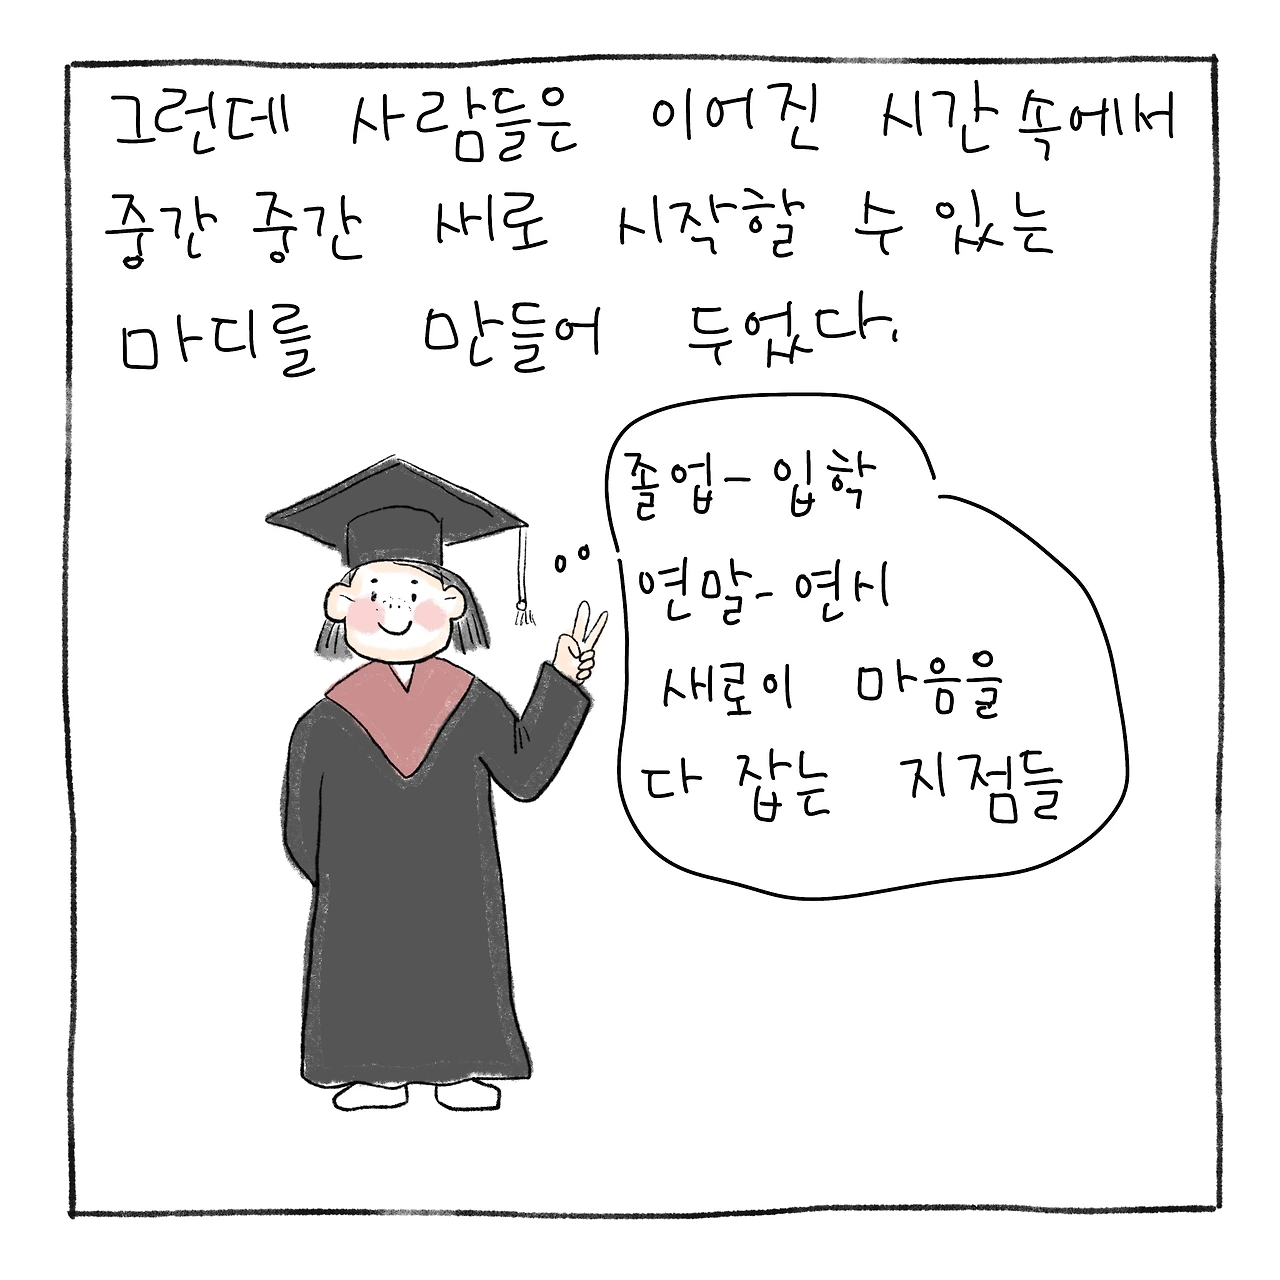 그런데 사람들은 이어진 시간 속에서
중간 중간 새로 시작할 수 있는
마디를 만들어 두었다.
졸업- 입학
연말- 연시
새로이 마음을
다 잡는 지점들